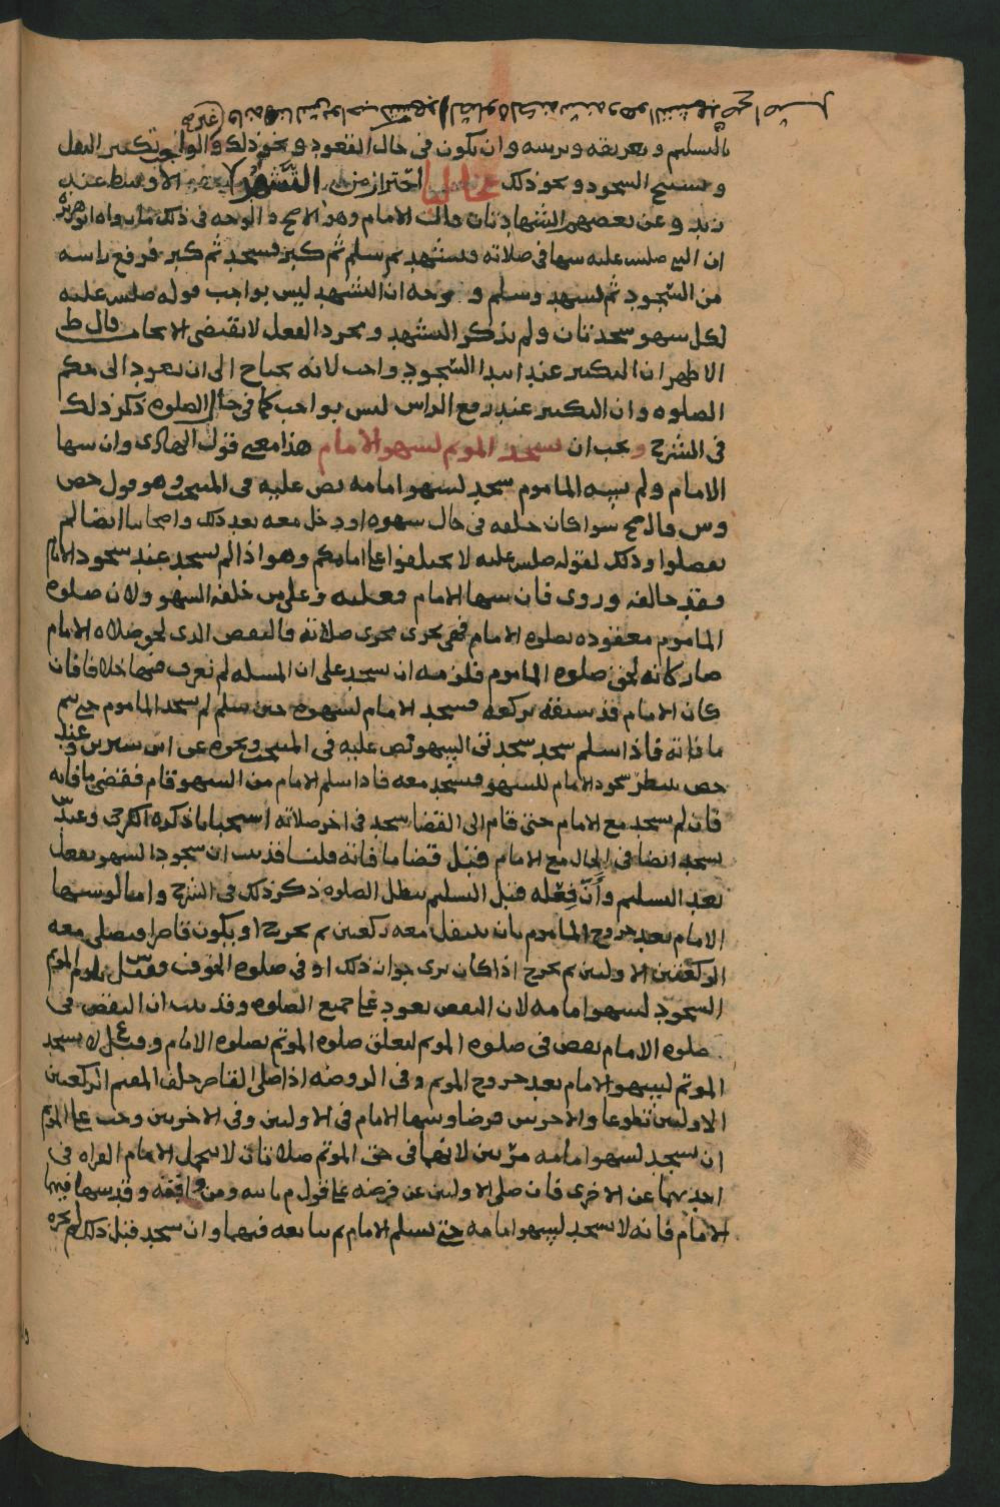 بالتسليم وتعريفه وترتيبه وان يكون في حال القعود ونحو ذلك والواجب تكبير النقل
وتسبيح السجود ونحو ذلك احتراز من التشهد الاوسط عند
زيد وعن بعضهم الشهادتان وقال الامام وهو الاصح والوجه في ذلك ما رواه ابو هريره
ان النبي صلى عليه سها في صلاته فتشهد ثم سلم ثم كبر فسجد ثم كبر فرفع راسه
من السجود ثم تشهد وسلم و وجه ان التشهد ليس بواجب قوله صلى عليه
لكل سهو سجدتان ولم يذكر التشهد ومجرد الفعل لا يقتضي الايجاب قال ط
الاظهر ان التكبير عند ابتدا السجود واجب لانه يحتاج الى ان يعود الى حكم
الصلوه وان التكبير عند رفع الراس ليس بواجب كما في حال الصلوه ذكر ذلك
في الشرح ويجب ان يسجد الموتم لسهو الامام هذا معنى قول الهادي وان سها
الامام ولم يسه الماموم سجد لسهو امامه نص عليه في المنتخب وهو قول حص
وس وقال صح سوا كان خلفه في حال سهوه او دخل معه بعد ذلك واصحابنا ايضا لم
يفصلوا وذلك لقوله صلى عليه لا تختلفوا على امامكم وهو اذا لم يسجد عند سجود الامام
فقد خالفه وروي فان سها الامام فعليه وعلى من خلفه السهو ولان صلوه
الماموم معقوده بصلوه الامام فهي تجري مجرى صلاته فالنقص الذي لحق صلاه الامام
صار كانه لحق صلوه الماموم فلزمه ان يسجد على ان المسله لم نعرف فيها خلافا فان
كان الامام قد سبقه بركعه فسجد الامام لسهوه حين سلم لم يسجد الماموم حتى يتم
ما فاته فاذا سلم سجد سجدتي السهو نص عليه في المنتخب ونحوه عن ابن سيرين وعند
حص ينتظر سجود الامام للسهو فسجد معه فاذا سلم الامام من السهو قام فقضى ما فاته
فان لم يسجد مع الامام حتى قام الى القضا سجد في اخر صلاته استحبابا ذكره الكرخي وعند س
يسجد ايضا في الحال مع الامام قبل قضا ما فاته قلنا قد ثبت ان سجود السهو يفعل
بعد التسليم وان فعله قبل التسليم يبطل الصلوه ذكر ذلك في الشرح واما لو سها
الامام بعد خروج الماموم بان يتنفل معه ركعتين ثم يخرج او يكون قاصرا فيصلي معه
الركعتين الاولتين ثم يخرج اذا كان يرى جواز ذلك او في صلوه الخوف فقيل يلزم الموتم
السجود لسهو امامه لان النقص يعود على جميع الصلوه وقد ثبت ان النقص في
صلوه الامام نقص في صلوه الموتم لتعلق صلوه الموتم بصلوه الامام وقيل لا يسجد
الموتم لسهو الامام بعد خروج الموتم وفي الروضه اذا صلى القاصر خلف المقيم الركعتين
الاولتين تطوعا والاخرتين فرضا وسها الامام في الاولتين وفي الاخرتين وجب على الموتم
ان يسجد لسهو امامه مرتين لانهما في حق الموتم صلاتان لا يتحمل الامام القراه في
احديهما عن الاخرى فان صلى الاولتين عن فرضه على قول م بالله ومن وافقه وقد سها فيهما
الامام فانه لا يسجد لسهو امامه حتى يسلم الامام ثم يتابعه فيهما وان سجد قبل ذلك لم يجزه